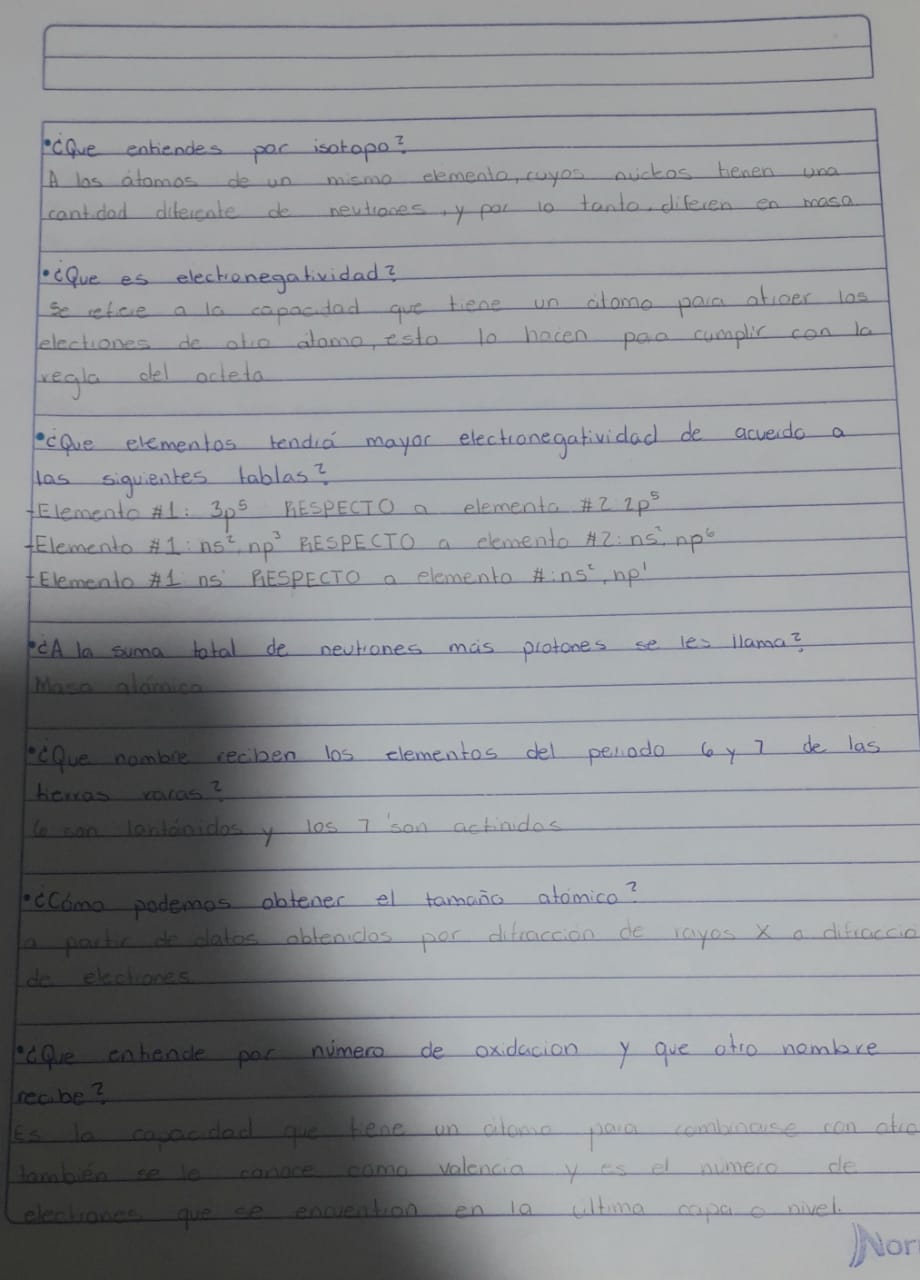 •¿Que entiendes por isotopo?
A los átomos de un mismo elemento, cuyos nucleos tienen una
cantidad diferente de neutrones, y por lo tanto, difieren en masa
•¿Que es electronegatividad?
Se refiere a la capacidad que tiene un átomo para atraer los
electrones de otro átomo, esto lo hacen paa cumplir con la
regla del octeto
•¿Que elementos tendrá mayor electronegatividad de acuerdo a
las siguientes tablas?
-Elemento #1: 3p⁵ RESPECTO a elemento #2 2p⁵
-Elemento #1: ns², np³ RESPECTO a elemento #2: ns², np⁶
-Elemento #1 ns¹ RESPECTO a elemento #: ns², np¹
•¿A la suma total de neutrones más protones se les llama?
Masa atómica
•¿Que nombre reciben los elementos del periodo 6 y 7 de las
tierras raras?
6 son lantánidos y los 7 son actinidos
•¿Cómo podemos obtener el tamaño atómico?
a partir de datos obtenidos por difracción de rayos X o difraccio
de electrones
•¿Que entiende por número de oxidacion y que otro nombre
recibe?
Es la capacidad que tiene un atomo para combinarse con otro
también se le conoce como valencia y es el número de
electrones que se encuentran en la última capa o nivel.
Nor